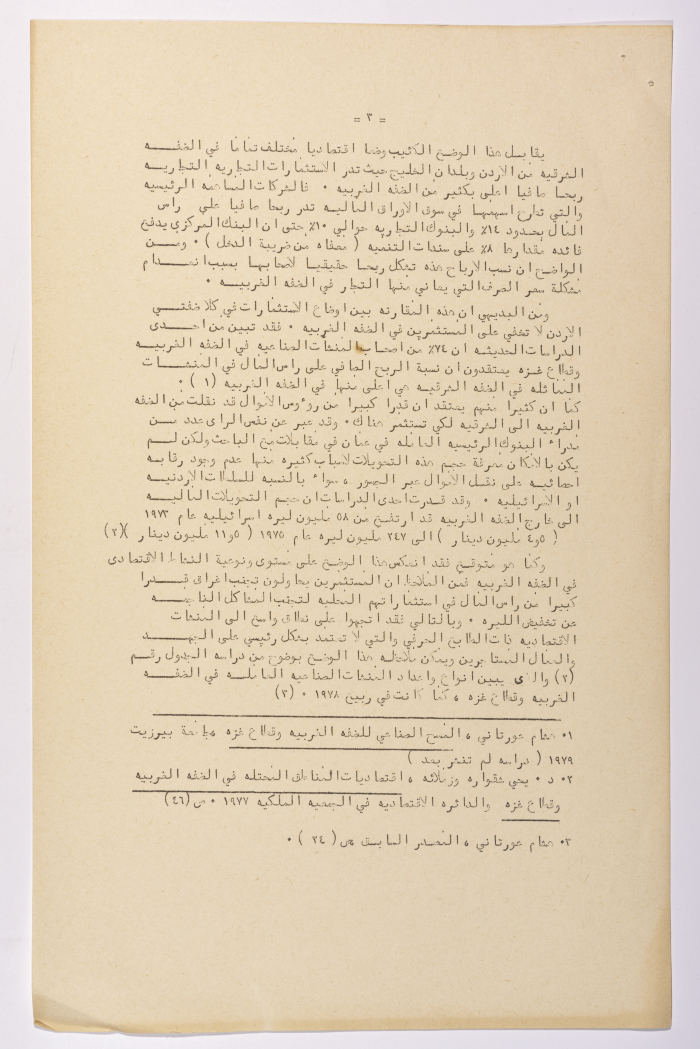 = ٣ =
يقابل هذا الوضع الكئيب وضعا اقتصاديا مختلف تماما في الضفه
الشرقيه من الاردن وبلدان الخليج حيث تدر الاستثمارات التجاريه التجاريه
ربحا صافيا اعلى بكثير من الضفه الغربيه ٠ فالشركات المساهمه الرئيسيه
والتي تدارج اسهمها في سوق الاوراق الماليه تدر ربحا صافيا على راس
المال بحدود ١٤٪ والبنوك التجاريه حوالي ١٠٪ حتى ان البنك المركزي يدفع
فائده مقدارها ٨٪ على سندات التنميه ( معفاه من ضريبة الدخل ) ٠ ومن
الواضح ان نسب الارباح هذه تشكل ربحا حقيقيا لاصحابها بسبب انعدام
مشكلة سعر الصرف التي يعاني منها التجار في الضفه الغربيه ٠
ومن البديهي ان هذه المقارنه بين اوضاع الاستثمارات في كلا ضفتي
الاردن لا تخفى على المستثمرين في الضفه الغربيه ٠ فقد تبين من احدى
الدراسات الحديثه ان ٧٤٪ من اصحاب المنشئات الصناعيه في الضفه الغربيه
وقطاع غزه يعتقدون ان نسبة الربح الصافي على راس المال في المنشئات
المماثله في الضفه الشرقيه هي اعلى منها في الضفه الغربيه (١) ٠
كما ان كثيرا منهم يعتقد ان قدرا كبيرا من رؤوس الاموال قد نقلت من الضفه
الغربيه الى الشرقيه لكي تستثمر هناك ٠ وقد عبر عن نفس الراى عدد من
مدراء البنوك الرئيسيه العامله في عمان في مقابلات مع الباحث ولكن لم
يكن بالامكان معرفة حجم هذه التحويلات لاسباب كثيره منها عدم وجود رقابه
احصائيه على نقل الاموال عبر الجسور ، سواء بالنسبه للسلطات الاردنيه
او الاسرائيليه ٠ وقد قدرت احدى الدراسات ان حجم التحويلات الماليه
الى خارج الضفه الغربيه قد ارتفع من ٥٨ مليون ليره اسرائيليه عام ١٩٧٣
( ٤و٥ مليون دينار ) الى ٢٤٧ مليون ليره عام ١٩٧٥ ( ٥و١١ مليون دينار )(٢)
وكما هو متوقع فقد انعكس هذا الوضع على مستوى ونوعية النشاط الاقتصادى
في الضفه الغربيه فمن الملاحظ ان المستثمرين يحاولون تجنب اغراق قدرا
كبيرا من راس المال في استثماراتهم المحليه لتجنب المشاكل الناجمه
عن تخفيض الليره ٠ وبالتالي فقد اتجهوا على نطاق واسع الى المنشات
الاقتصاديه ذات الطابع الحرفي والتي لا تعتمد بشكل رئيسي على الجهد
والعمال المستاجرين ويمكن ملاحظه هذا الوضع بوضوح من دراسه الجدول رقم
(٢) والذى يبين انواع واعداد المنشات الصناعيه العامله في الضفه
الغربيه وقطاع غزه ، كما كانت في ربيع ١٩٧٨ ٠ (٣)
٠١ هشام عورتاني ، المسح الصناعي للضفه الغربيه وقطاع غزه ، جامعة بيرزيت
١٩٧٩ ( دراسه لم تنشر بعد )
٠٢ د ٠ يحي شقواره وزملائه ، اقتصاديات المناطق المحتله في الضفه الغربيه
وقطاع غزه والدائره الاقتصاديه في الجمعيه الملكيه ١٩٧٧ ٠ ص (٤٦)
٠٣ هشام عورتاني ، المصدر السابق ص ( ٢٤ ) ٠